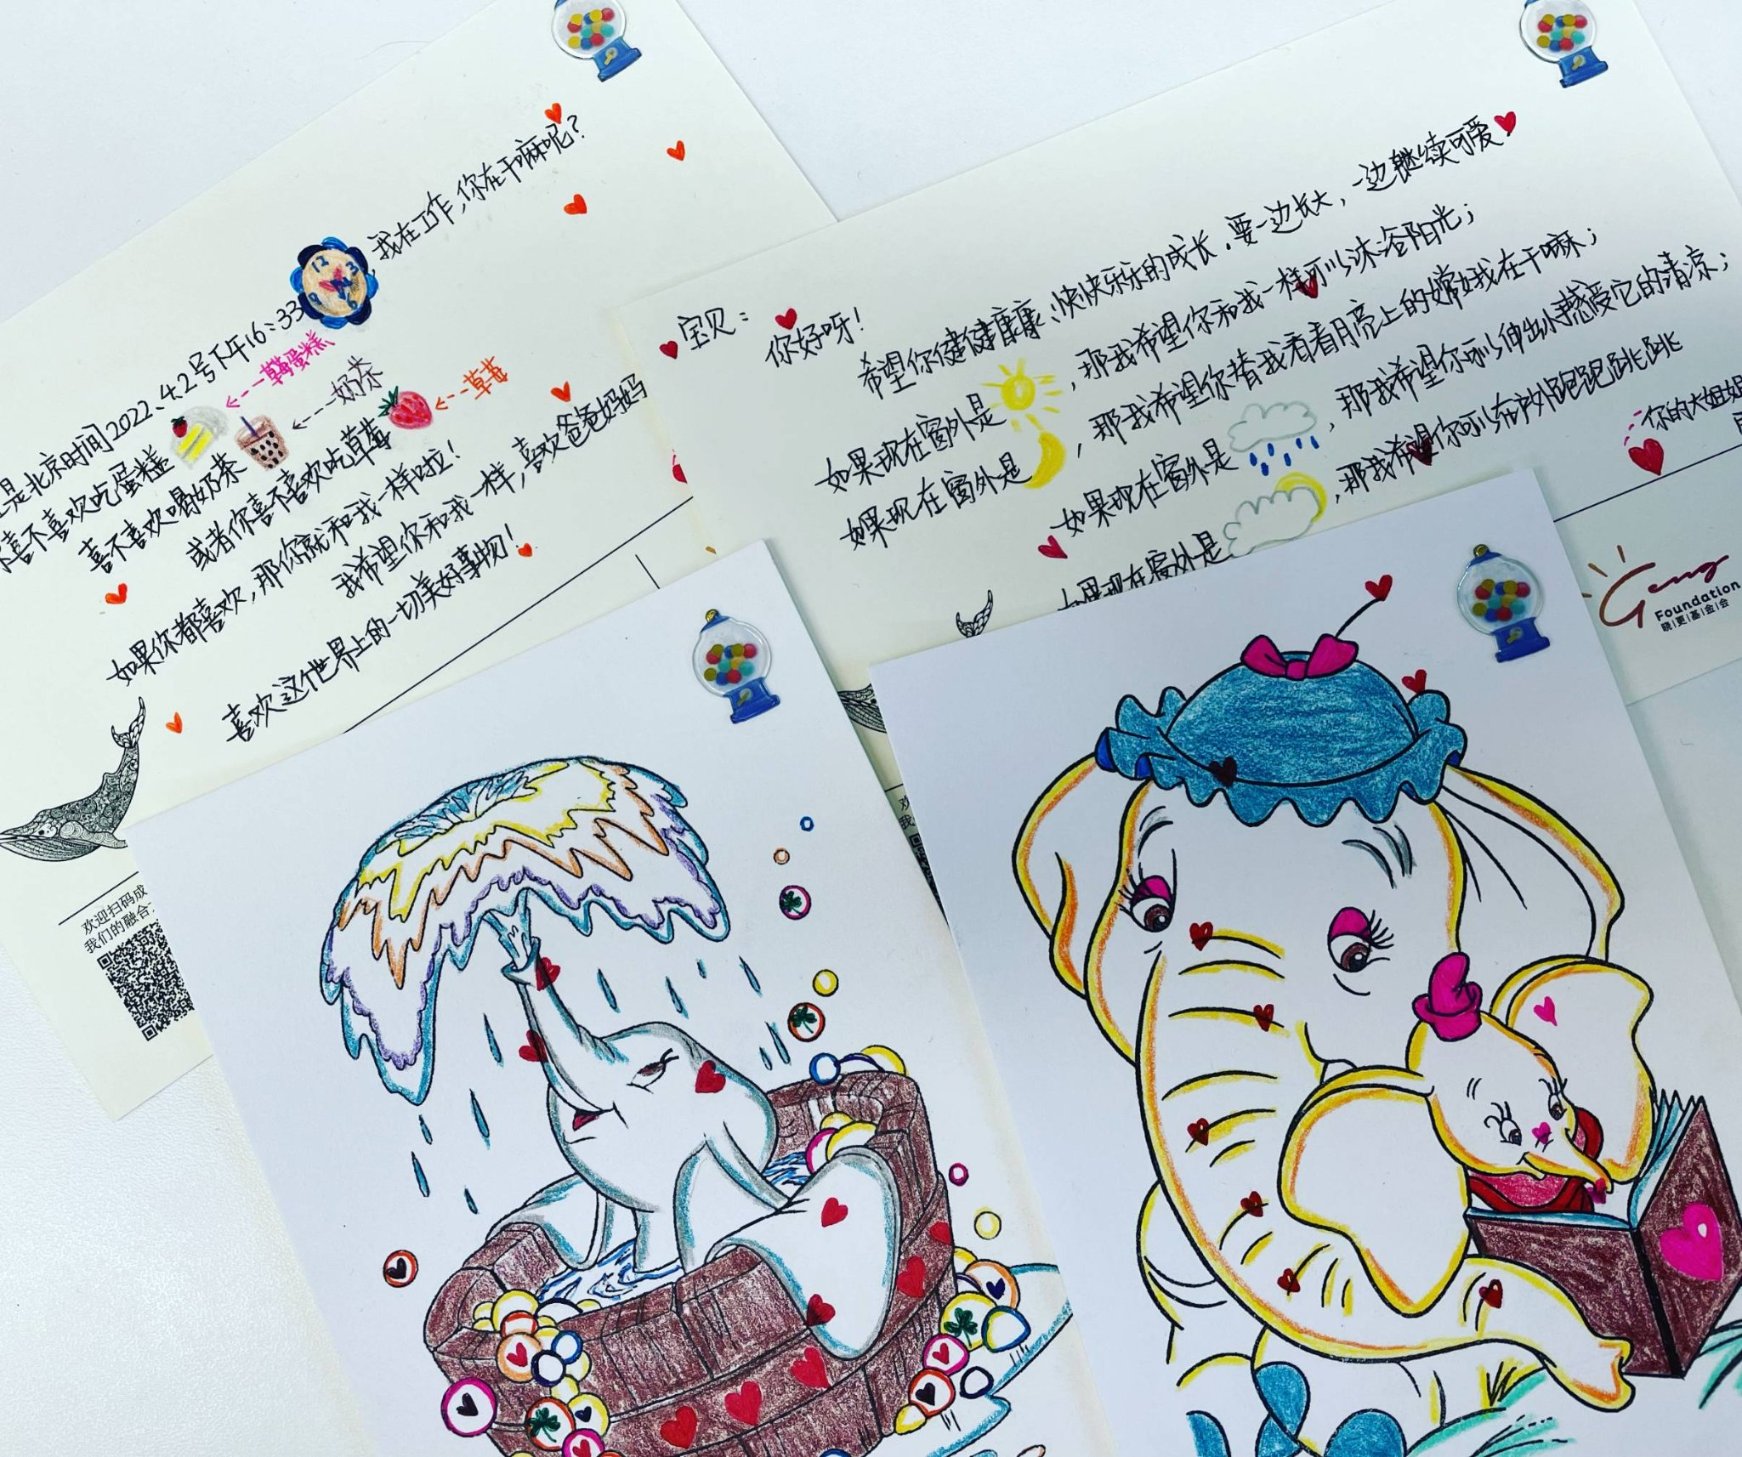 是北京时间2022.4.2号下午16:33
我在工作,你在干嘛呢?
喜不喜欢吃蛋糕
草莓蛋糕
喜不喜欢喝奶茶
奶茶
或者你喜不喜欢吃草莓
草莓
如果你都喜欢,那你就和我一样啦!
我希望你和我一样,喜欢爸爸妈妈
喜欢这个世界上的一切美好事物!
欢迎扫码成
我们的融合
宝贝:
你好呀!
希望你健健康康、快快乐乐的成长,要一边长大,一边继续可爱
如果现在窗外是,那我希望你和我一样可以沐浴阳光;
如果现在窗外是,那我希望你替我看看月亮上的嫦娥在干嘛;
如果现在窗外是,那我希望你可以伸出小手感受它的清凉;
如果现在窗外是,那我希望你可以在户外跑跑跳跳
你的大姐姐
Geng
Foundation
晓更基金会